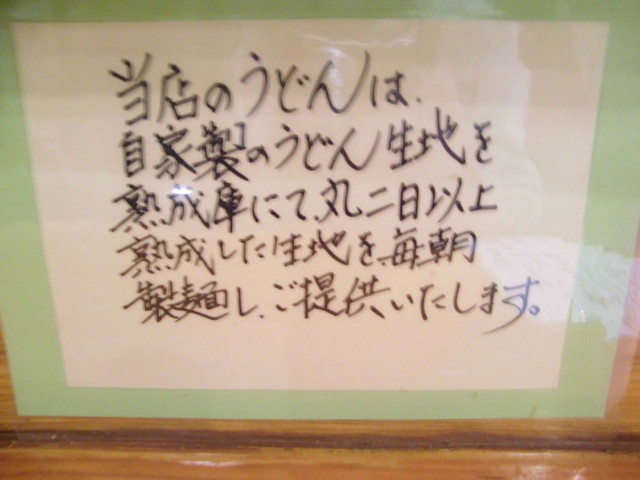 当店のうどんは、
自家製のうどん生地を
熟成庫にて、丸二日以上
熟成した生地を、毎朝
製麺し、ご提供いたします。